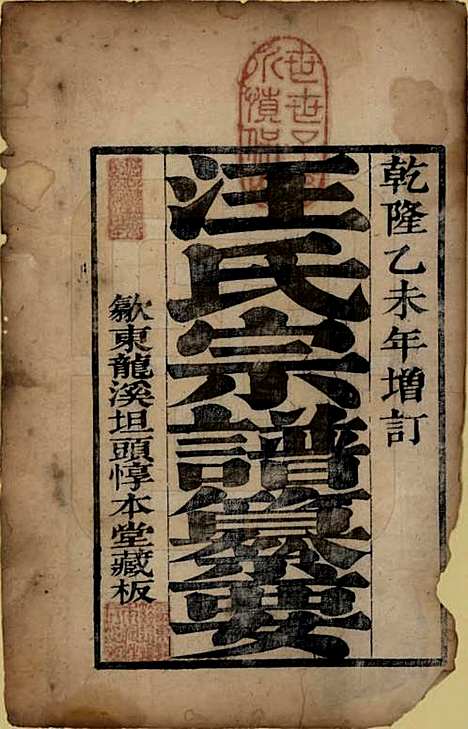 乾隆乙未年增訂
汪氏宗譜纂要
歙東龍溪坦頭惇本堂藏板
世世子